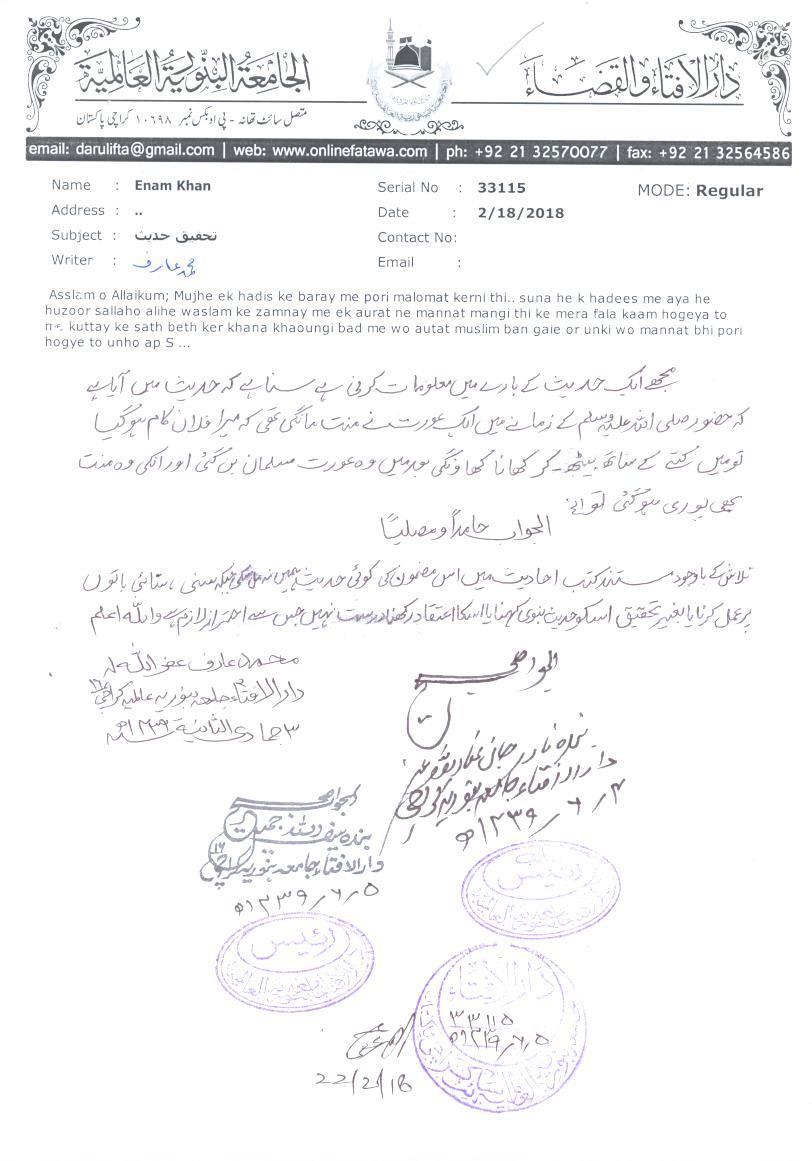 الجامعۃ البنوریۃ العالمیۃ
دار الافتاء والقضاء
متصل سائٹ تھانہ - پی او بکس نمبر ۱۰۶۹۸ کراچی پاکستان
email: darulifta@gmail.com | web: www.onlinefatawa.com | ph: +92 21 32570077 | fax: +92 21 32564586
Name : Enam Khan Serial No : 33115 MODE: Regular
Address : .. Date : 2/18/2018
Subject : تحقیق حدیث Contact No:
Writer : محمد عارف Email :
Asslam o Allaikum; Mujhe ek hadis ke baray me pori malomat kerni thi.. suna he k hadees me aya he
huzoor sallaho alihe waslam ke zamnay me ek aurat ne mannat mangi thi ke mera fala kaam hogeya to
kuttay ke sath beth ker khana khaoungi bad me wo autat muslim ban gaie or unki wo mannat bhi pori
hogye to unho ap S ...
مجھے ایک حدیث کے بارے میں معلومات کرنی ہے سنا ہے کہ حدیث میں آیا ہے
کہ حضور صلی اللہ علیہ وسلم کے زمانے میں ایک عورت نے منت مانگی تھی کہ میرا فلان کام ہوگیا
تو میں کتے کے ساتھ بیٹھ کر کھانا کھاؤنگی بعد میں وہ عورت مسلمان بن گئی اور انکی وہ منت
بھی پوری ہوگئی تو
الجواب حامداً ومصلیاً
تلاش کے باوجود مستند کتب احادیث میں اس مضمون کی کوئی حدیث ہمیں نہ مل سکی جبکہ سنی سنائی باتوں
پر عمل کرنا یا بغیر تحقیق اسکو حدیث نبوی کہنا یا اسکا اعتقاد رکھنا درست نہیں جس سے احتراز لازم ہے واللہ اعلم
محمد عارف عفی اللہ لہ
دار الافتاء جامعہ بنوریہ عالمیہ کراچی ۱۶
۳ جمادی الثانیۃ ۱۴۳۹ھ
الجواب صحیح
بندہ نادر جان
دار الافتاء جامعہ بنوریہ کراچی
۴/۶/۱۴۳۹ھ
الجواب صحیح
بندہ سیف اللہ جمیل
دار الافتاء جامعہ بنوریہ کراچی ۱۶
۵/۶/۱۴۳۹ھ
رئیس
رئیس
دار الافتاء
۳۳۱۱۵
۵/۶/۱۴۳۹ھ
22/2/18